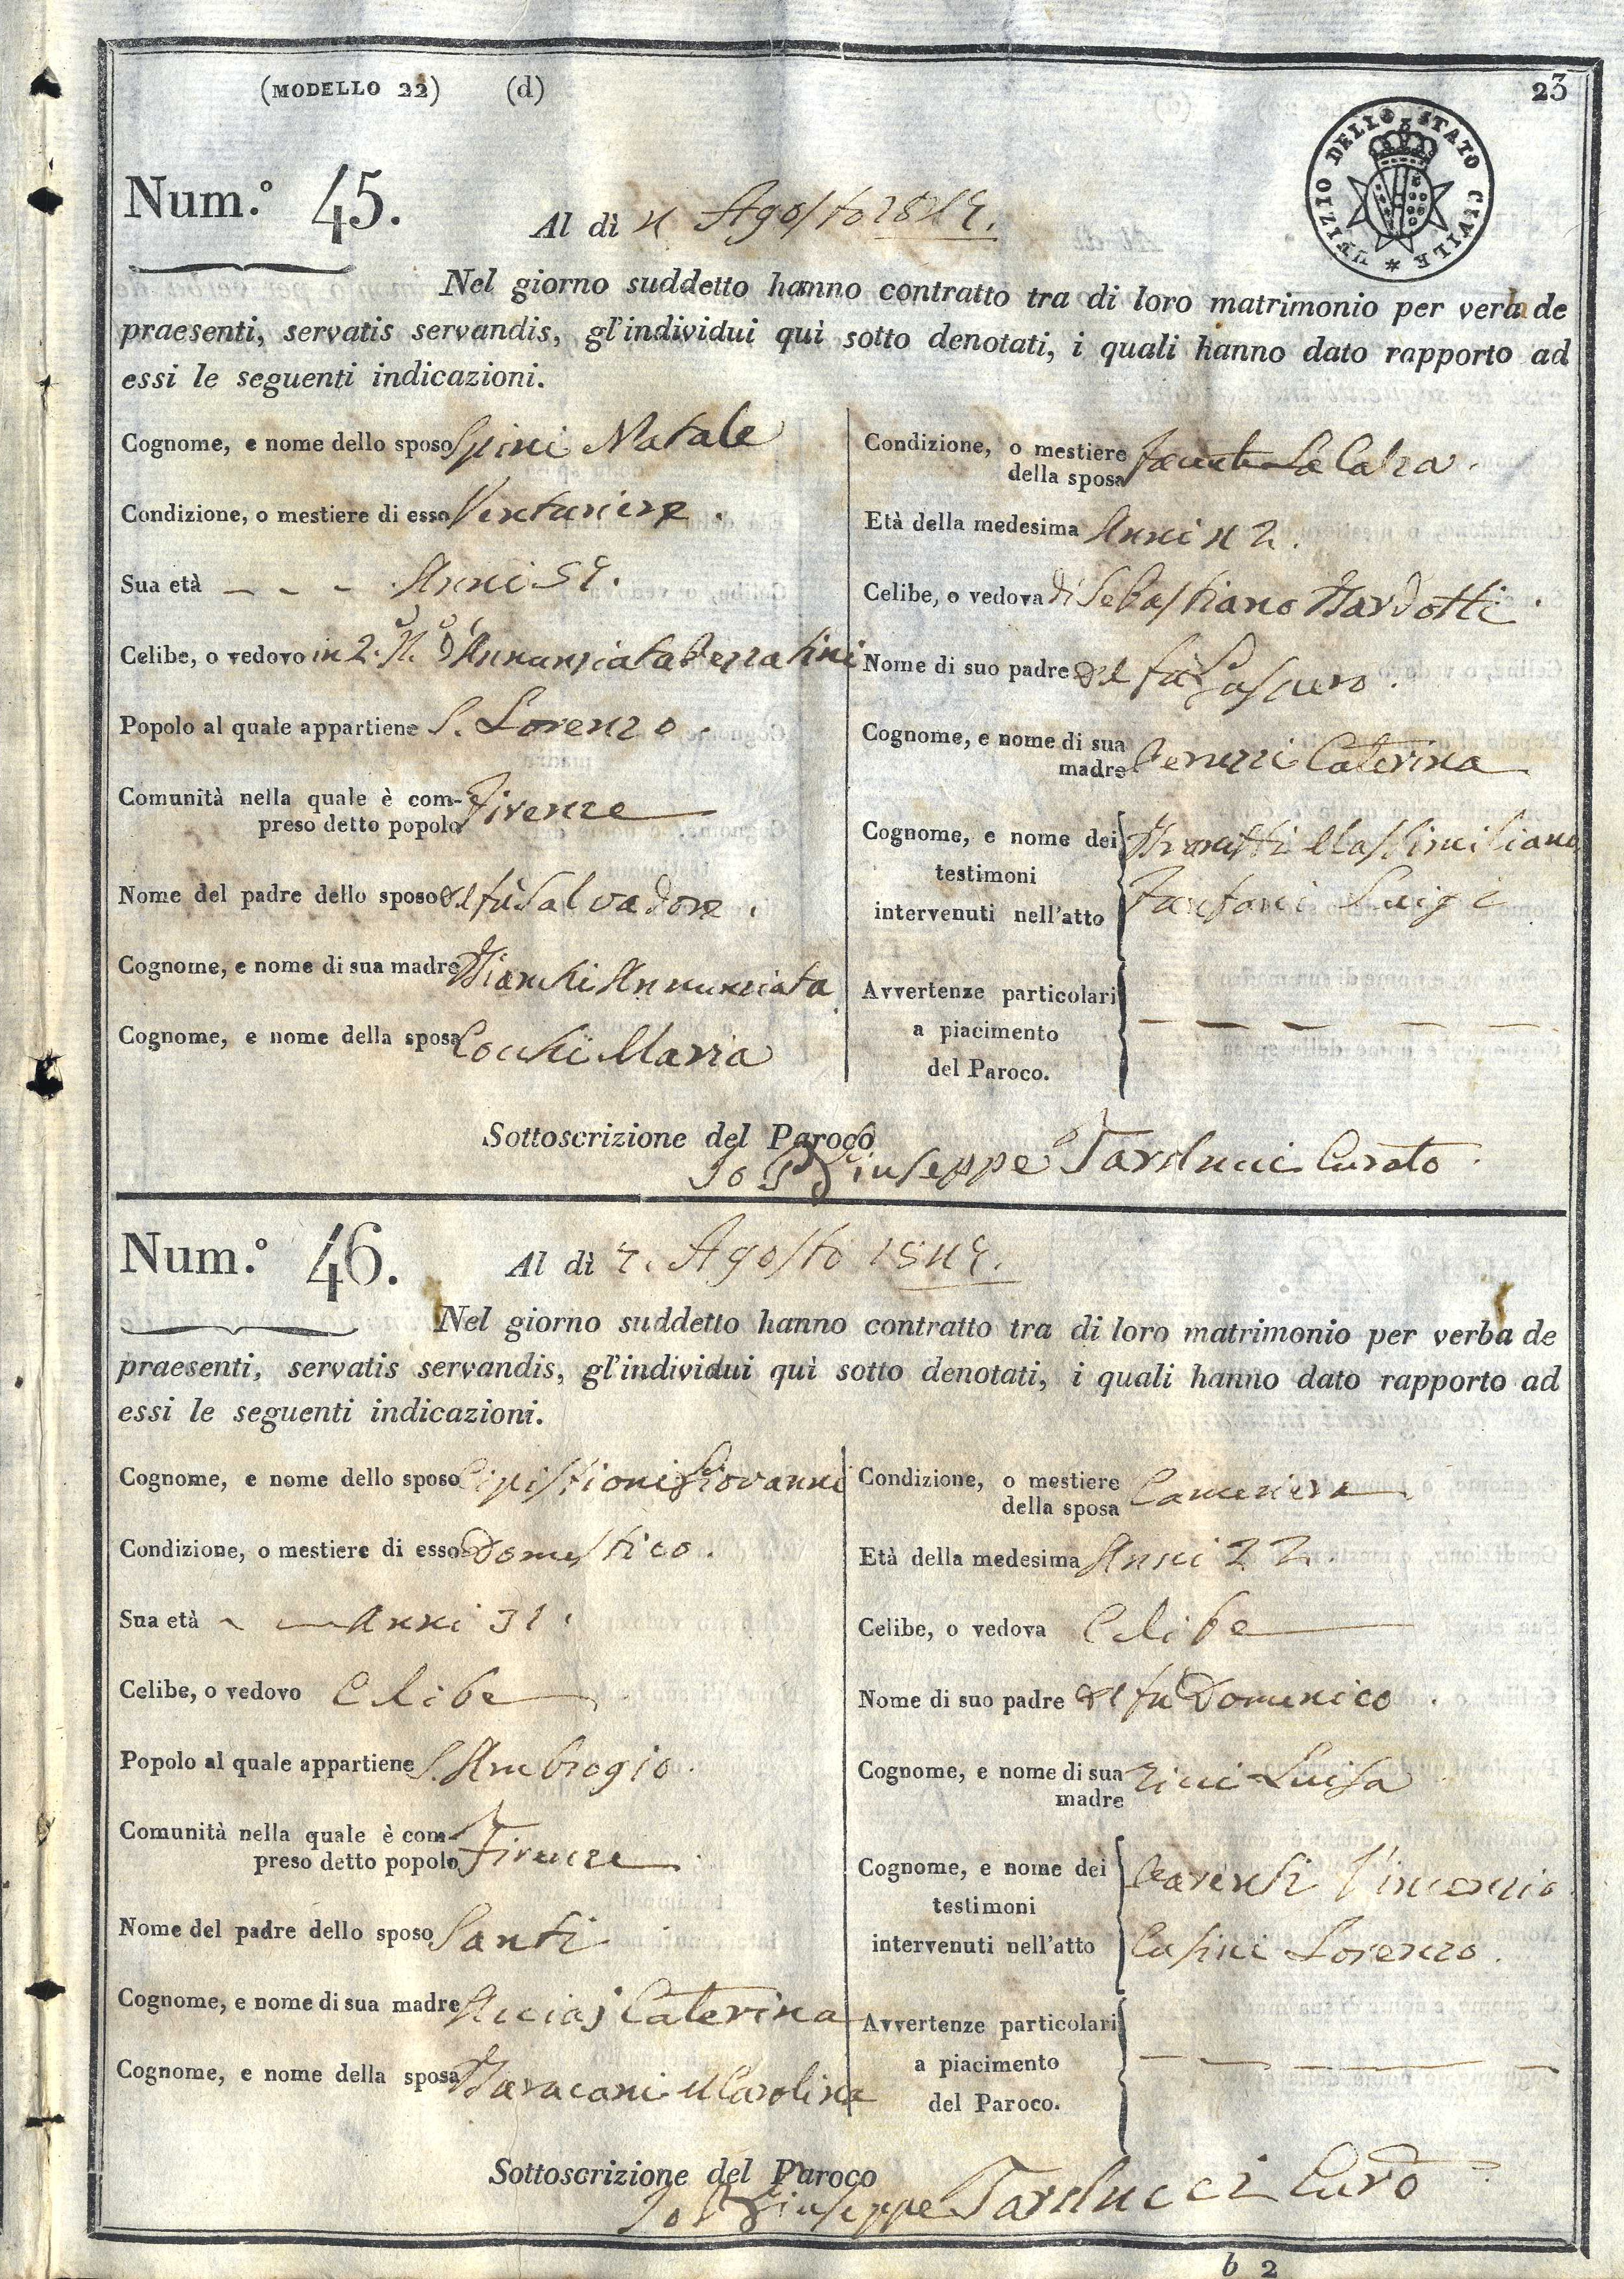 (MODELLO 22) (d)
23
UFIZIO DELLO STATO CIVILE
Num.° 45.
Al dì 4 Agosto 1849.
Nel giorno suddetto hanno contratto tra di loro matrimonio per verba de
praesenti, servatis servandis, gl'individui quì sotto denotati, i quali hanno dato rapporto ad
essi le seguenti indicazioni.
Cognome, e nome dello sposo Spini Natale
Condizione, o mestiere di esso Venturiere.
Sua età Anni 59.
Celibe, o vedovo in 2. N. d'Annunziata
Popolo al quale appartiene S. Lorenzo.
Comunità nella quale è com-
preso detto popolo Firenze
Nome del padre dello sposo del fù Salvadore.
Cognome, e nome di sua madre Bianchi Annunziata
Cognome, e nome della sposa Cocchi Maria
Condizione, o mestiere
della sposa La Calza.
Età della medesima Anni 42.
Celibe, o vedova di Sebastiano Bardotti.
Nome di suo padre del fù
Cognome, e nome di sua
madre Caterina
Cognome, e nome dei
testimoni
intervenuti nell'atto
Massimiliano
Fanfani Luigi
Avvertenze particolari
a piacimento
del Paroco.
Sottoscrizione del Paroco
Io P. Giuseppe Tarducci Curato.
Num.° 46.
Al dì 7. Agosto 1849.
Nel giorno suddetto hanno contratto tra di loro matrimonio per verba de
praesenti, servatis servandis, gl'individui quì sotto denotati, i quali hanno dato rapporto ad
essi le seguenti indicazioni.
Cognome, e nome dello sposo Cipistioni Giovanni
Condizione, o mestiere di esso Domestico.
Sua età Anni 31.
Celibe, o vedovo Celibe
Popolo al quale appartiene S. Ambrogio.
Comunità nella quale è com-
preso detto popolo Firenze.
Nome del padre dello sposo Santi
Cognome, e nome di sua madre Acciaj Caterina
Cognome, e nome della sposa Baracani Carolina
Condizione, o mestiere
della sposa Cameriera
Età della medesima Anni 22.
Celibe, o vedova Celibe
Nome di suo padre del fù Domenico.
Cognome, e nome di sua
madre Luisa
Cognome, e nome dei
testimoni
intervenuti nell'atto
Vincenzio
Casini Lorenzo.
Avvertenze particolari
a piacimento
del Paroco.
Sottoscrizione del Paroco
Io P. Giuseppe Tarducci Curo
b 2